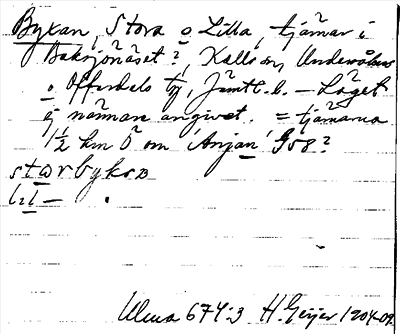 Byxan, Stora o Lilla, tjärnar i
Baksjönäset?, Kalls sn, Undersåkers
o Offerdals tg, Jämtl. l. – Läget
ej närmare angivet. = tjärnarna
1½ km Ö om 'Anjan' 458?
storbyksɒ
lil – .
Ulma 674:3 H. Geijer 1904-09.